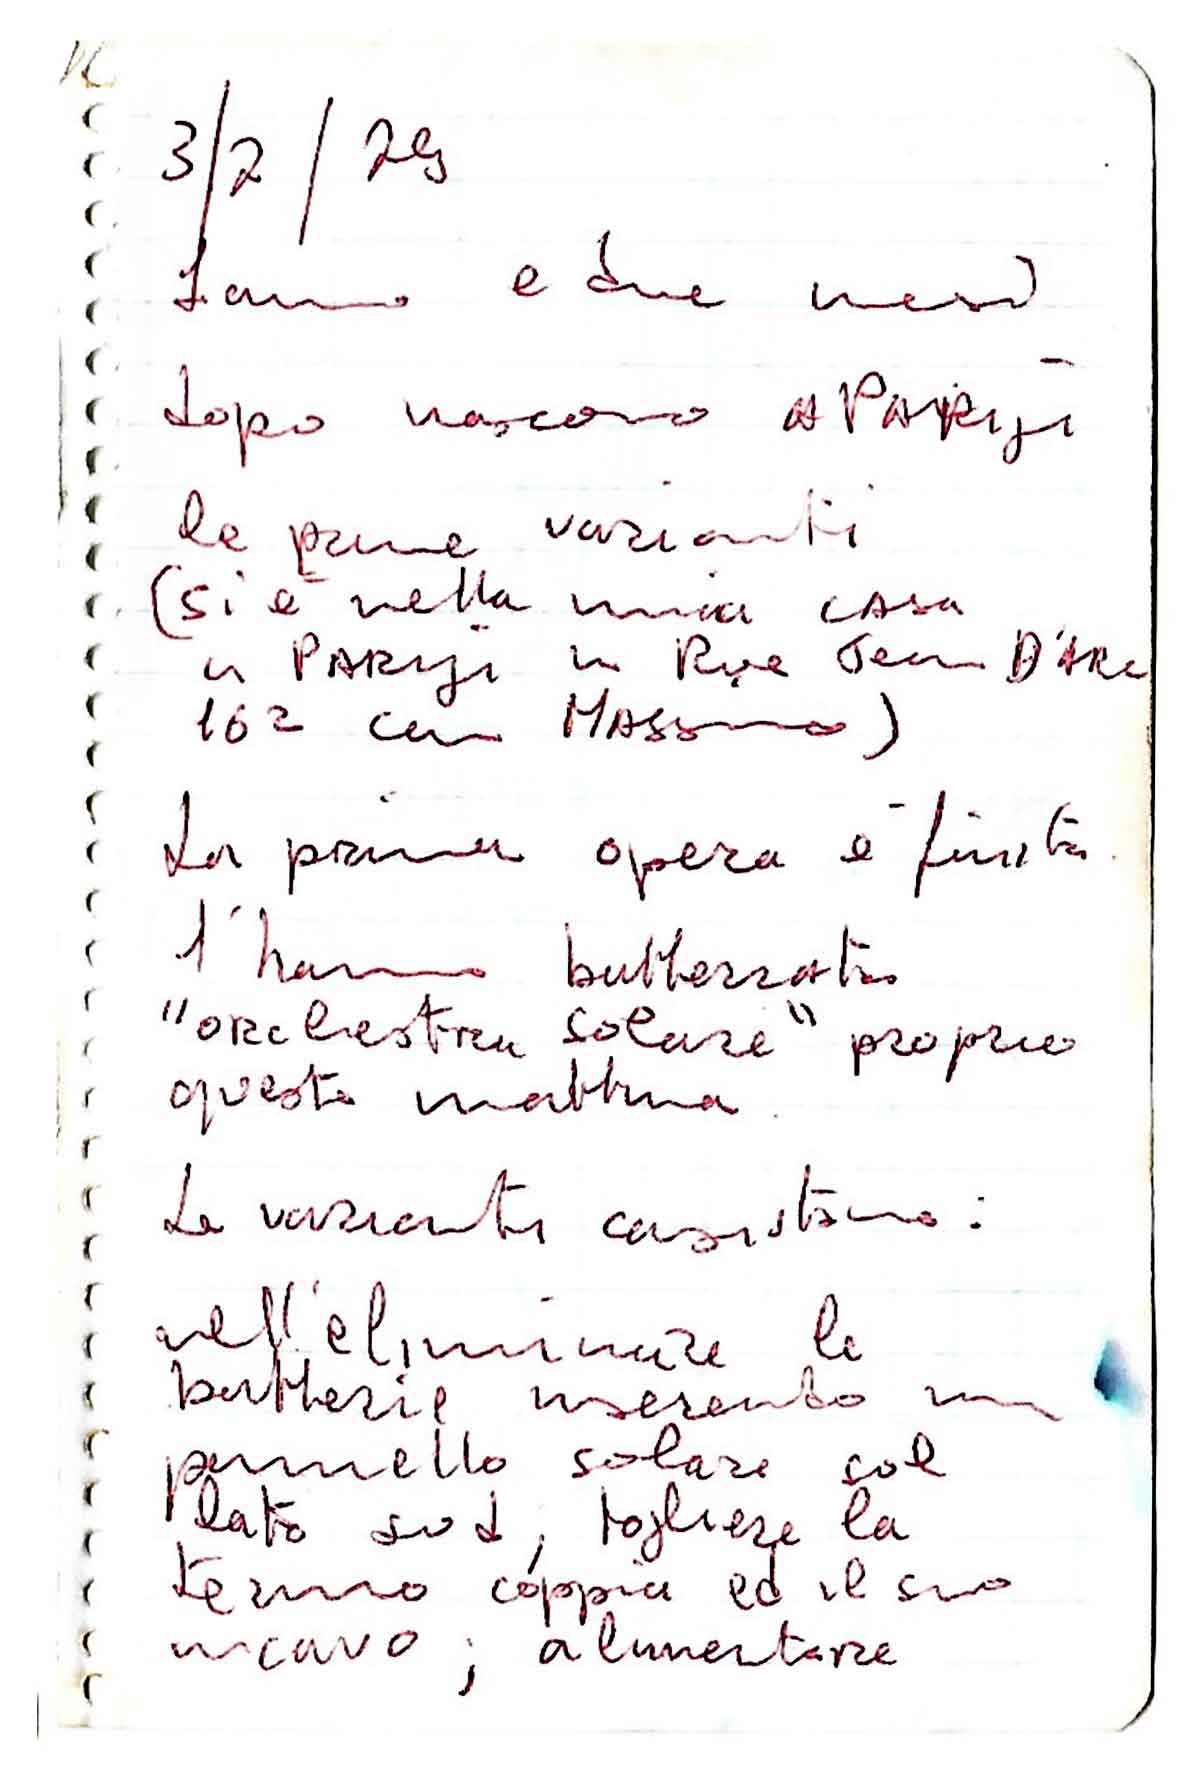 3/2/
1 anno e due mesi
dopo nascono A PARIgi
le prime varianti
(si è nella mia CASA
a PARIgi in Rue Jean D'ARC
162 con MASSimo)
La prima opera è finita
l'hanno battezzata
"orchestra solare" proprio
questa mattina
Le varianti consistono:
nell'eliminare le
batterie inserendo un
pannello solare sul
lato sud, togliere la
termo coppia ed il suo
incavo; alimentare